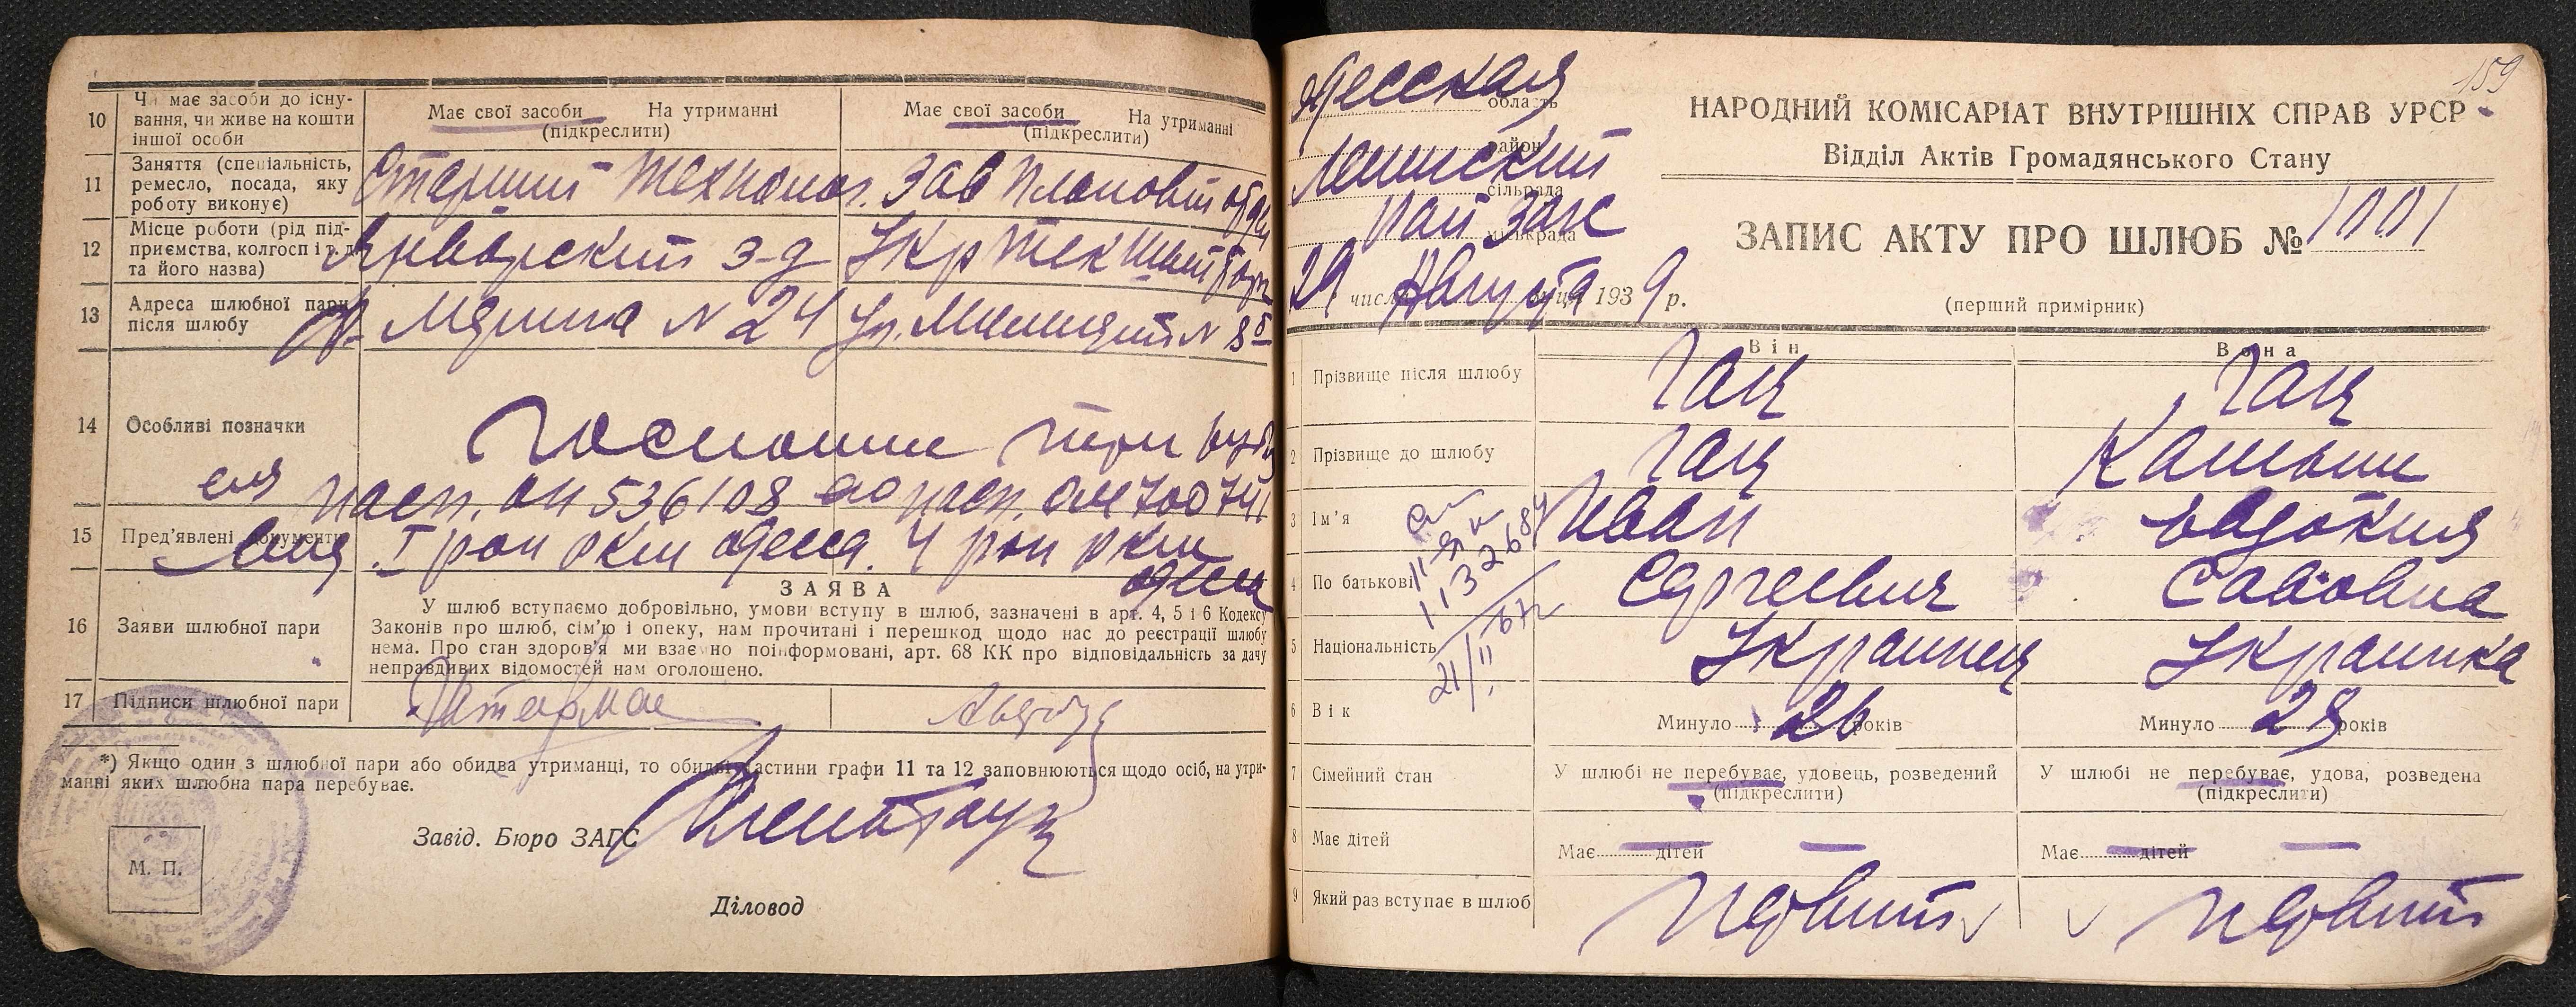 10 Чи має засоби до існу-
вання, чи живе на кошти
іншої особи
Має свої засоби На утриманні
(підкреслити)
Має свої засоби На утриманні
(підкреслити)
11 Заняття (спеціальність,
ремесло, посада, яку
роботу виконує)
Старший технолог. Зав плановой
12 Місце роботи (рід під-
приємства, колгосп і т. д.
та його назва)
Январский з-д
13 Адреса шлюбної пари
після шлюбу
№ 24 Ул. № 8
14 Особливі позначки
Госпошл три рубл
15 Пред'явлені документи
пасп. ОП 536108 пасп. ОМ 700741
I рай РКМ Одесса. 4 рай РКМ
Одесса
16 Заяви шлюбної пари
ЗАЯВА
У шлюб вступаємо добровільно, умови вступу в шлюб, зазначені в арт. 4, 5 і 6 Кодексу
Законів про шлюб, сім'ю і опеку, нам прочитані і перешкод щодо нас до реєстрації шлюбу
нема. Про стан здоров'я ми взаємно поінформовані, арт. 68 КК про відповідальність за дачу
неправдивих відомостей нам оголошено.
17 Підписи шлюбної пари
*) Якщо один з шлюбної пари або обидва утриманці, то обидві частини графи 11 та 12 заповнюються щодо осіб, на утри-
манні яких шлюбна пара перебуває.
Завід. Бюро ЗАГС
М. П.
Діловод
159
Одесская
область
район
Ленинский
сільрада
рай Загс
міськрада
29 числа Августа місяця 1939 р.
НАРОДНИЙ КОМІСАРІАТ ВНУТРІШНІХ СПРАВ УРСР
Відділ Актів Громадянського Стану
ЗАПИС АКТУ ПРО ШЛЮБ № 1001
(перший примірник)
Він Вона
1 Прізвище після шлюбу Гац Гац
2 Прізвище до шлюбу Гац
3 Ім'я Иван Евдокия
4 По батькові Сергеевич Савовна
5 Національність Украинец Украинка
6 Вік Минуло 26 років Минуло 29 років
7 Сімейний стан
У шлюбі не перебуває, удовець, розведений
(підкреслити)
У шлюбі не перебуває, удова, розведена
(підкреслити)
8 Має дітей Має дітей — Має дітей —
9 Який раз вступає в шлюб Первый Первый
II-ЯК
1132684
21/II 67г